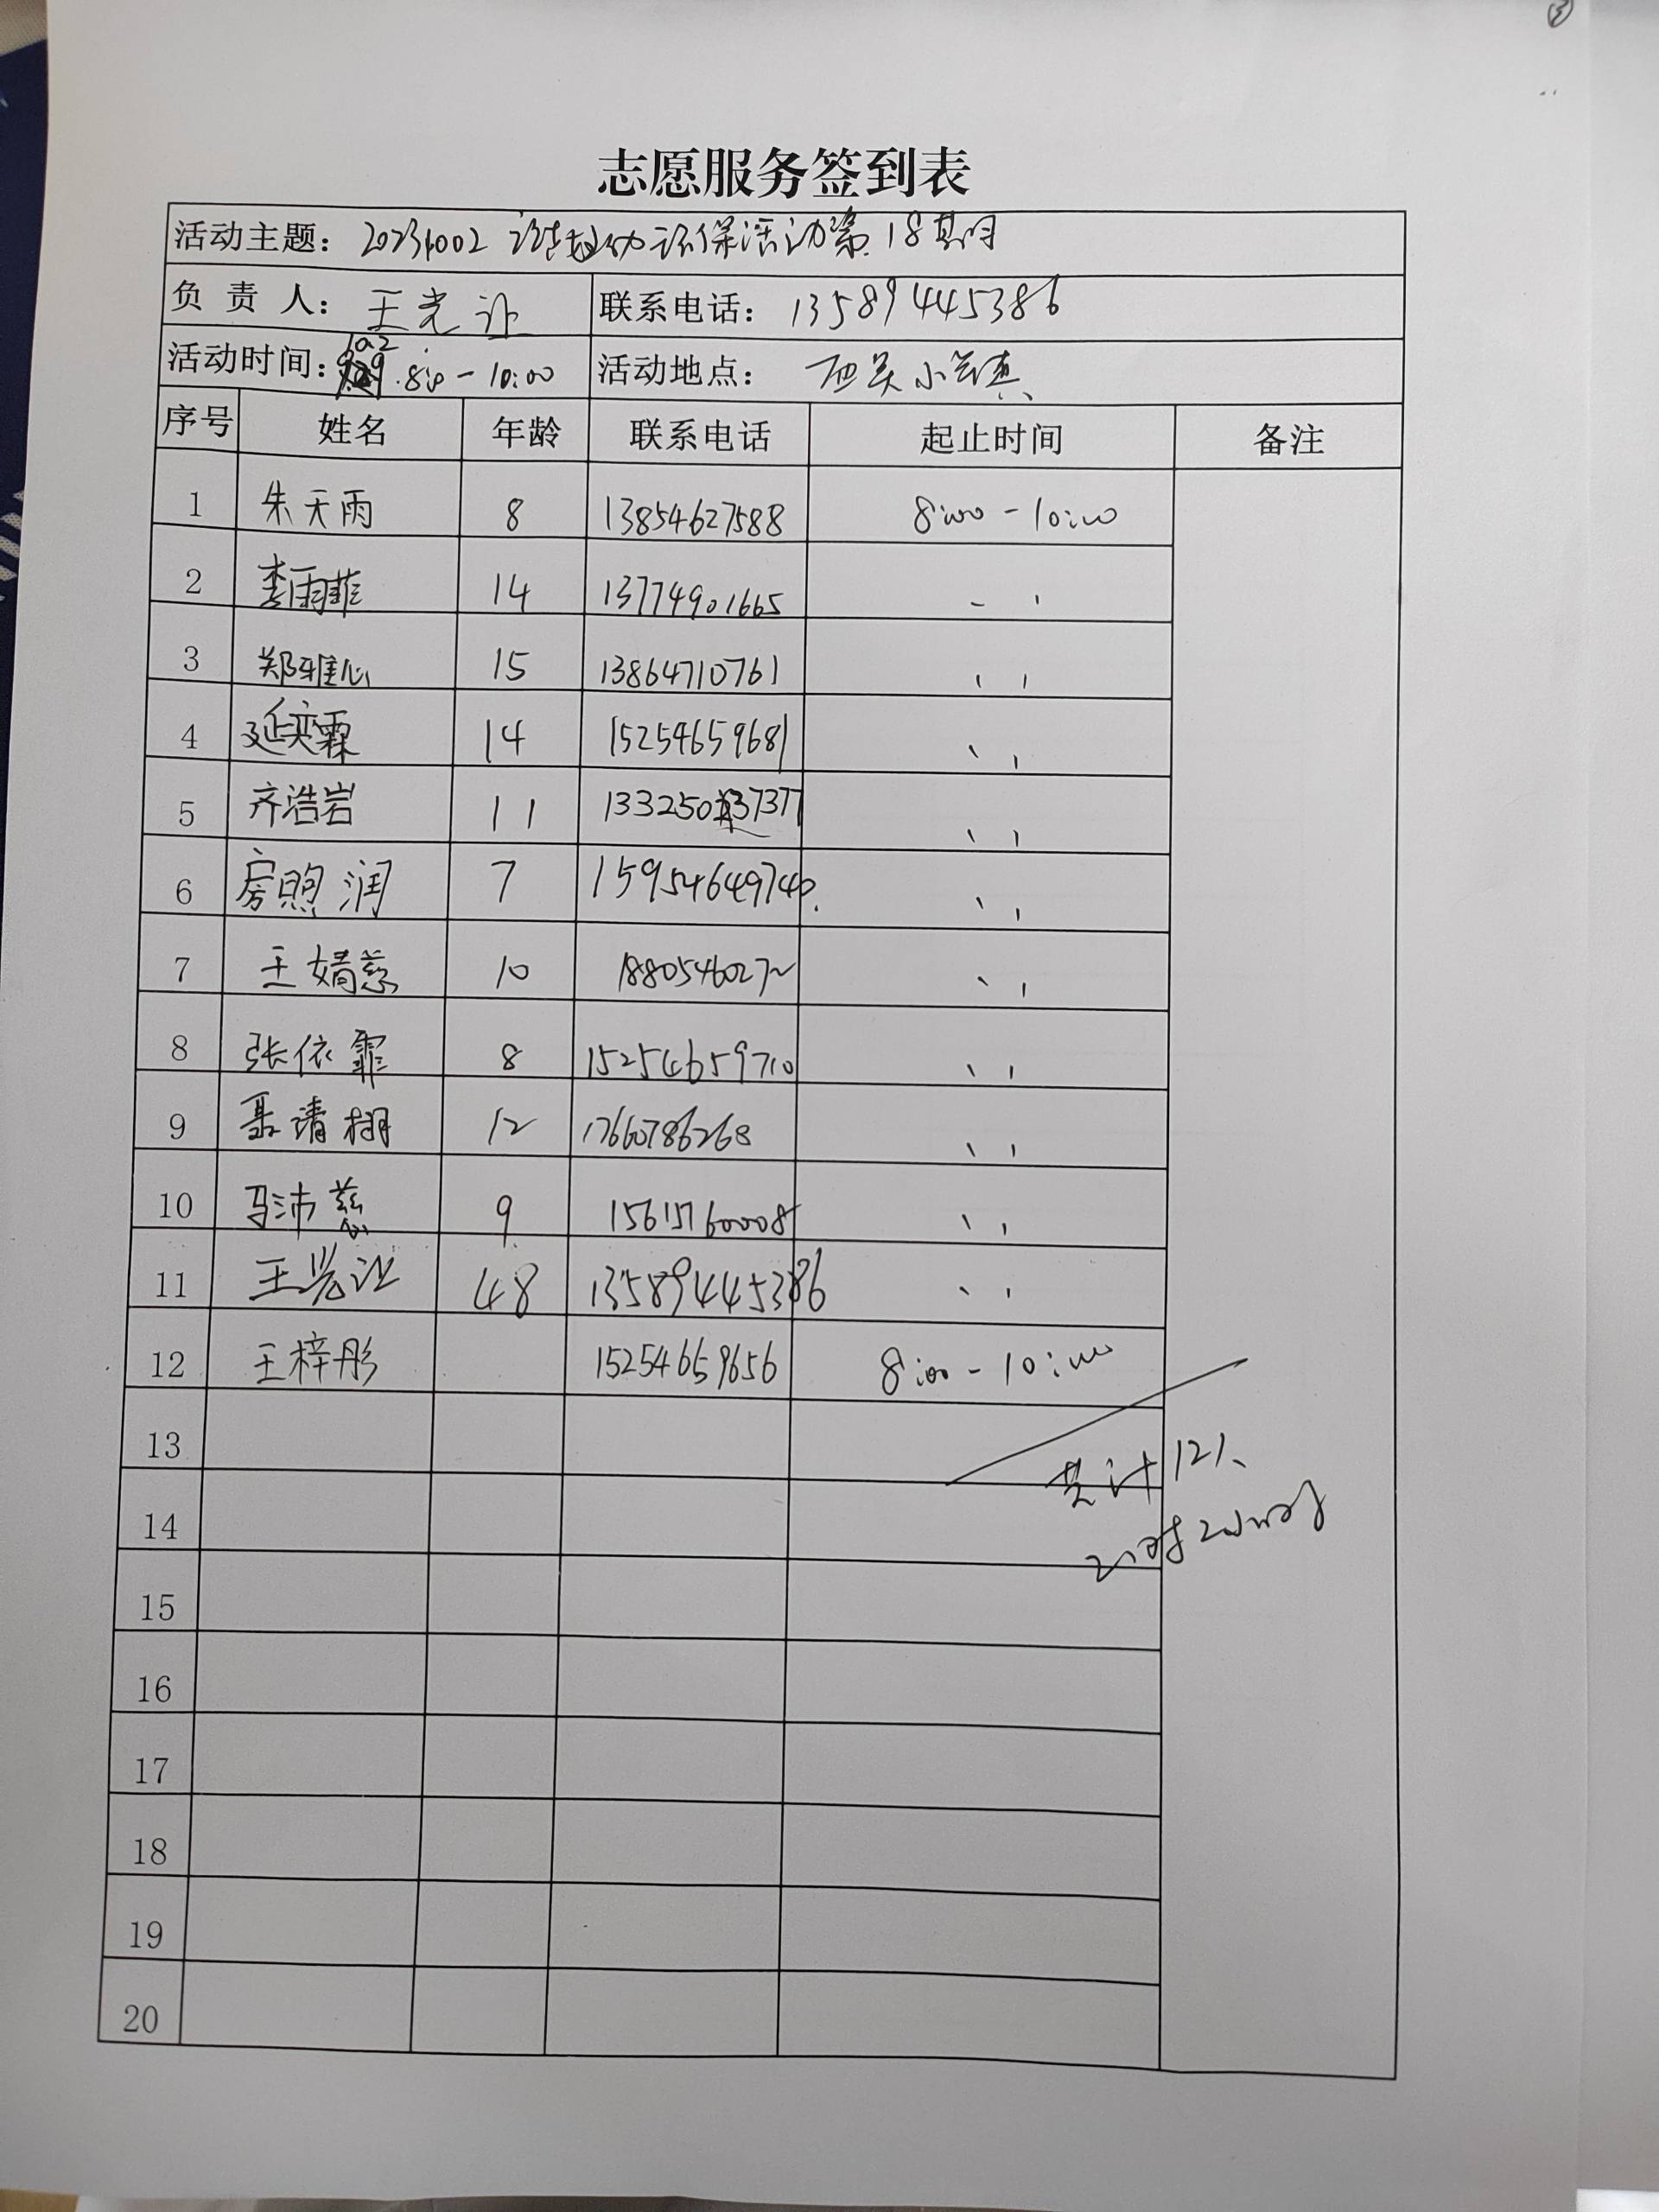 ③
志愿服务签到表
活动主题: 20231002 环保活动第18期
负责人: 王光 联系电话: 13589445386
活动时间: 10.2 8:00-10:00 活动地点: 小
序号 姓名 年龄 联系电话 起止时间 备注
1 朱天雨 8 13854627588 8:00-10:00
2 李雨菲 14 13774901665
3 郑雅心 15 13864710761 〃
4 延奕霖 14 15254659681 〃
5 齐浩岩 11 133250 37377 〃
6 房煦润 7 15954649740 〃
7 王婧慈 10 〃
8 张依霏 8 15254659710 〃
9 聂清栩 12 〃
10 马沛慈 9 15615760008 〃
11 王光 48 13589445386 〃
12 王梓彤 15254659656 8:00-10:00
13
共计12人
14
2小时
15
16
17
18
19
20